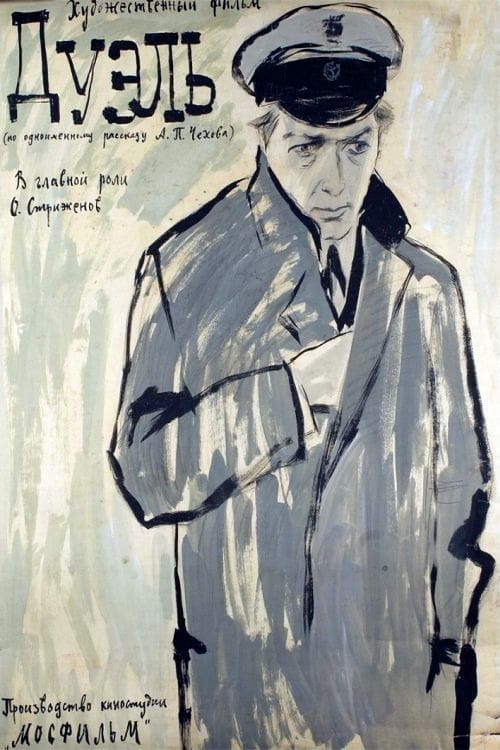 Художественный фильм
Дуэль
(по одноименному рассказу А. П. Чехова)
В главной роли
О. Стриженов
Производство киностудии
„МОСФИЛЬМ"